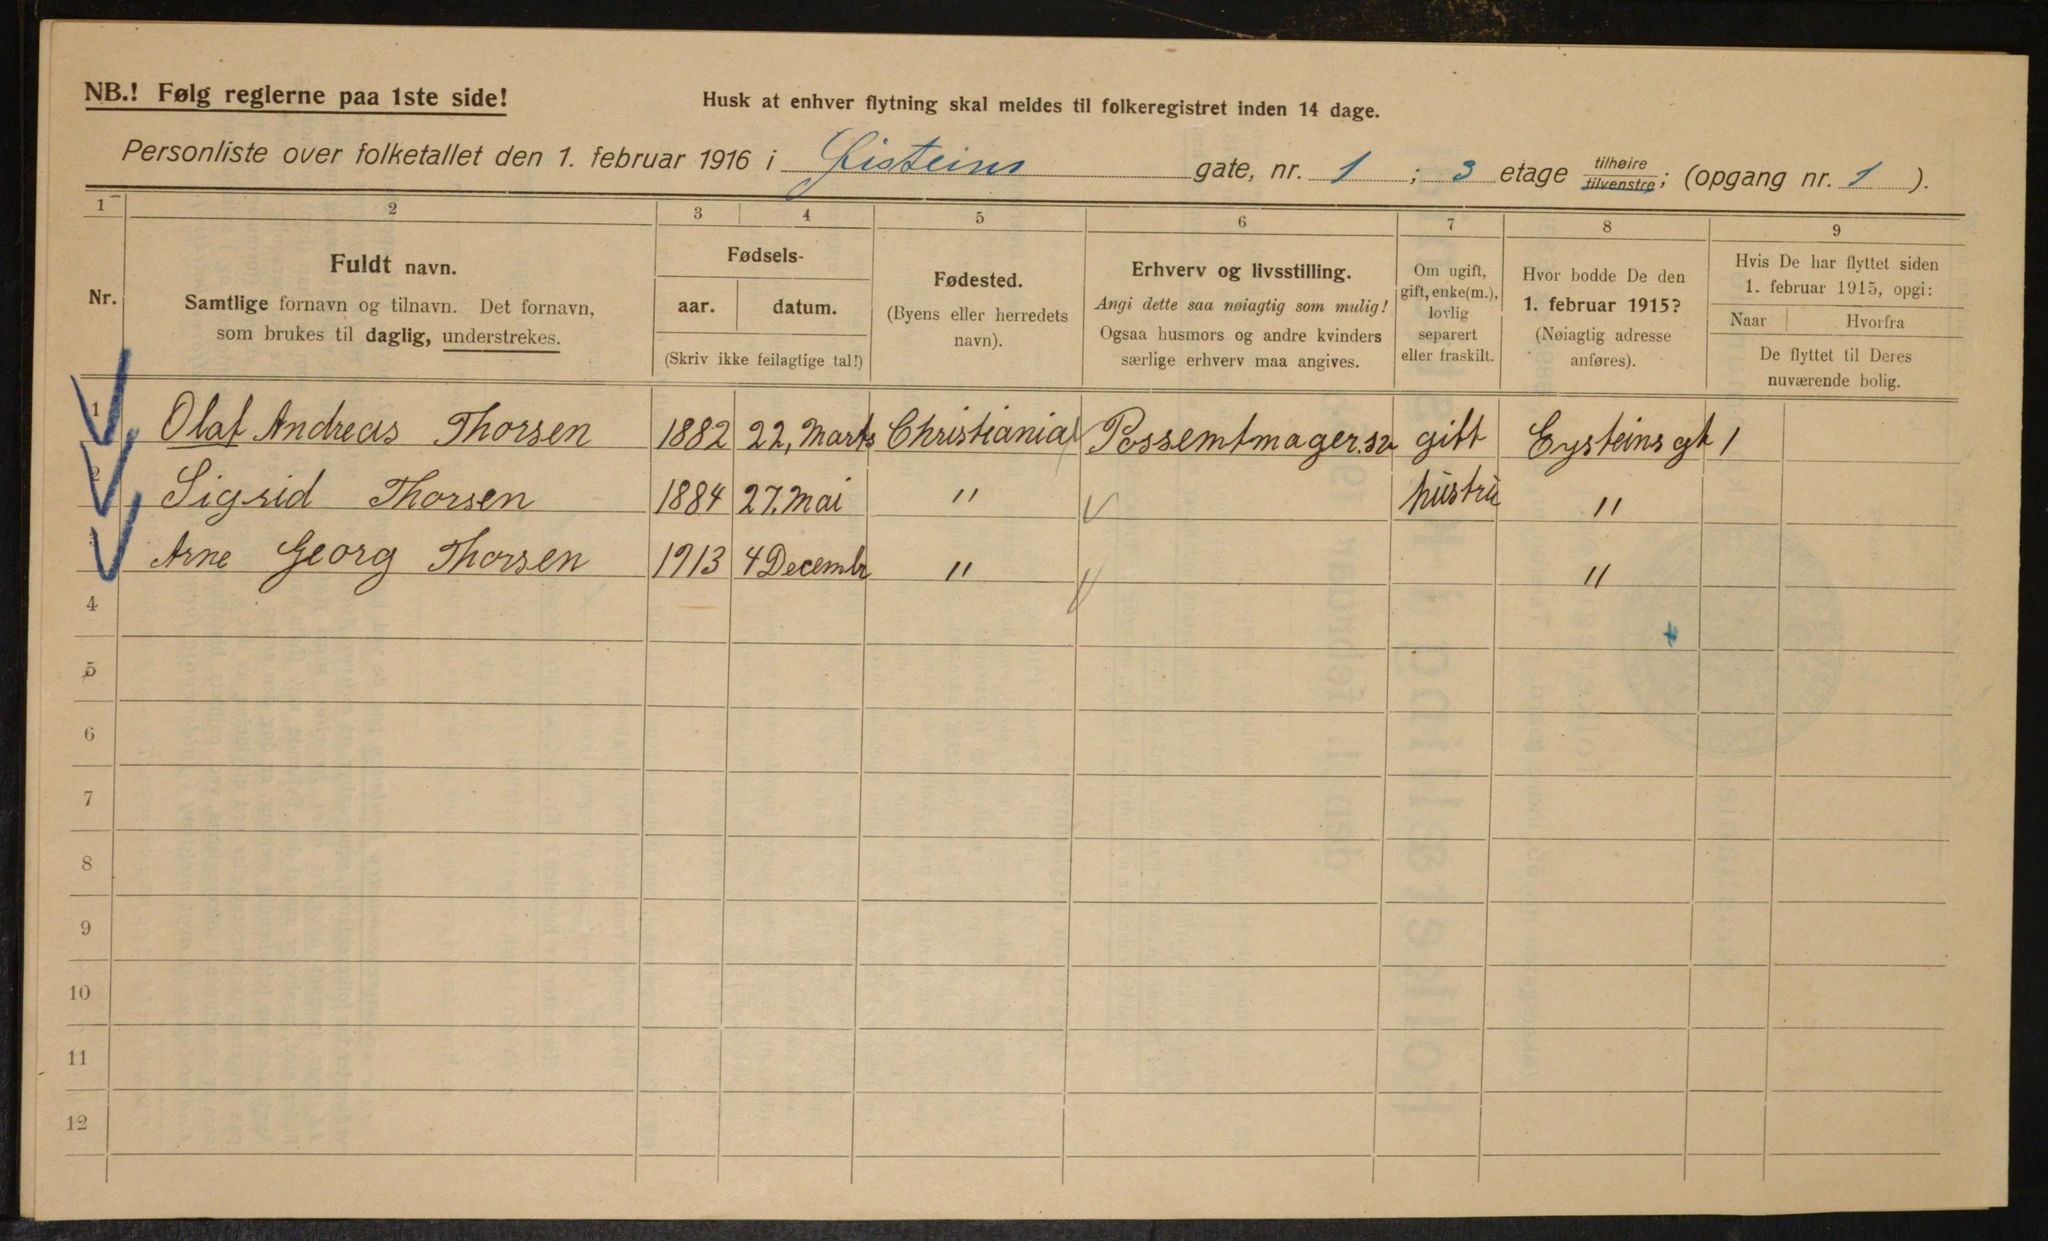 NB.! Følg reglerne paa 1ste side!
Husk at enhver flytning skal meldes til folkeregistret inden 14 dage.
Personliste over folketallet den 1. februar 1916 i Øisteins gate, nr. 1 ; 3 etage tilhøire tilvenstre; (opgang nr. 1 ).
1 2 3 4 5 6 7 8 9
Nr.
Fuldt navn.
Samtlige fornavn og tilnavn. Det fornavn,
som brukes til daglig, understrekes.
Fødsels-
aar. datum.
(Skriv ikke feilagtige tal!)
Fødested.
(Byens eller herredets
navn).
Erhverv og livsstilling.
Angi dette saa nøiagtig som mulig!
Ogsaa husmors og andre kvinders
særlige erhverv maa angives.
Om ugift,
gift, enke(m.),
lovlig
separert
eller fraskilt.
Hvor bodde De den
1. februar 1915?
(Nøiagtig adresse
anføres).
Hvis De har flyttet siden
1. februar 1915, opgi:
Naar Hvorfra
De flyttet til Deres
nuværende bolig.
1 Olaf Andreas Thorsen 1882 22, Marts Christiania Possemtmager.sv gift Eysteins gt 1
2 Sigrid Thorsen 1884 27. Mai " hustru "
3 Arne Georg Thorsen 1913 4 Decembr " "
4
5
6
7
8
9
10
11
12